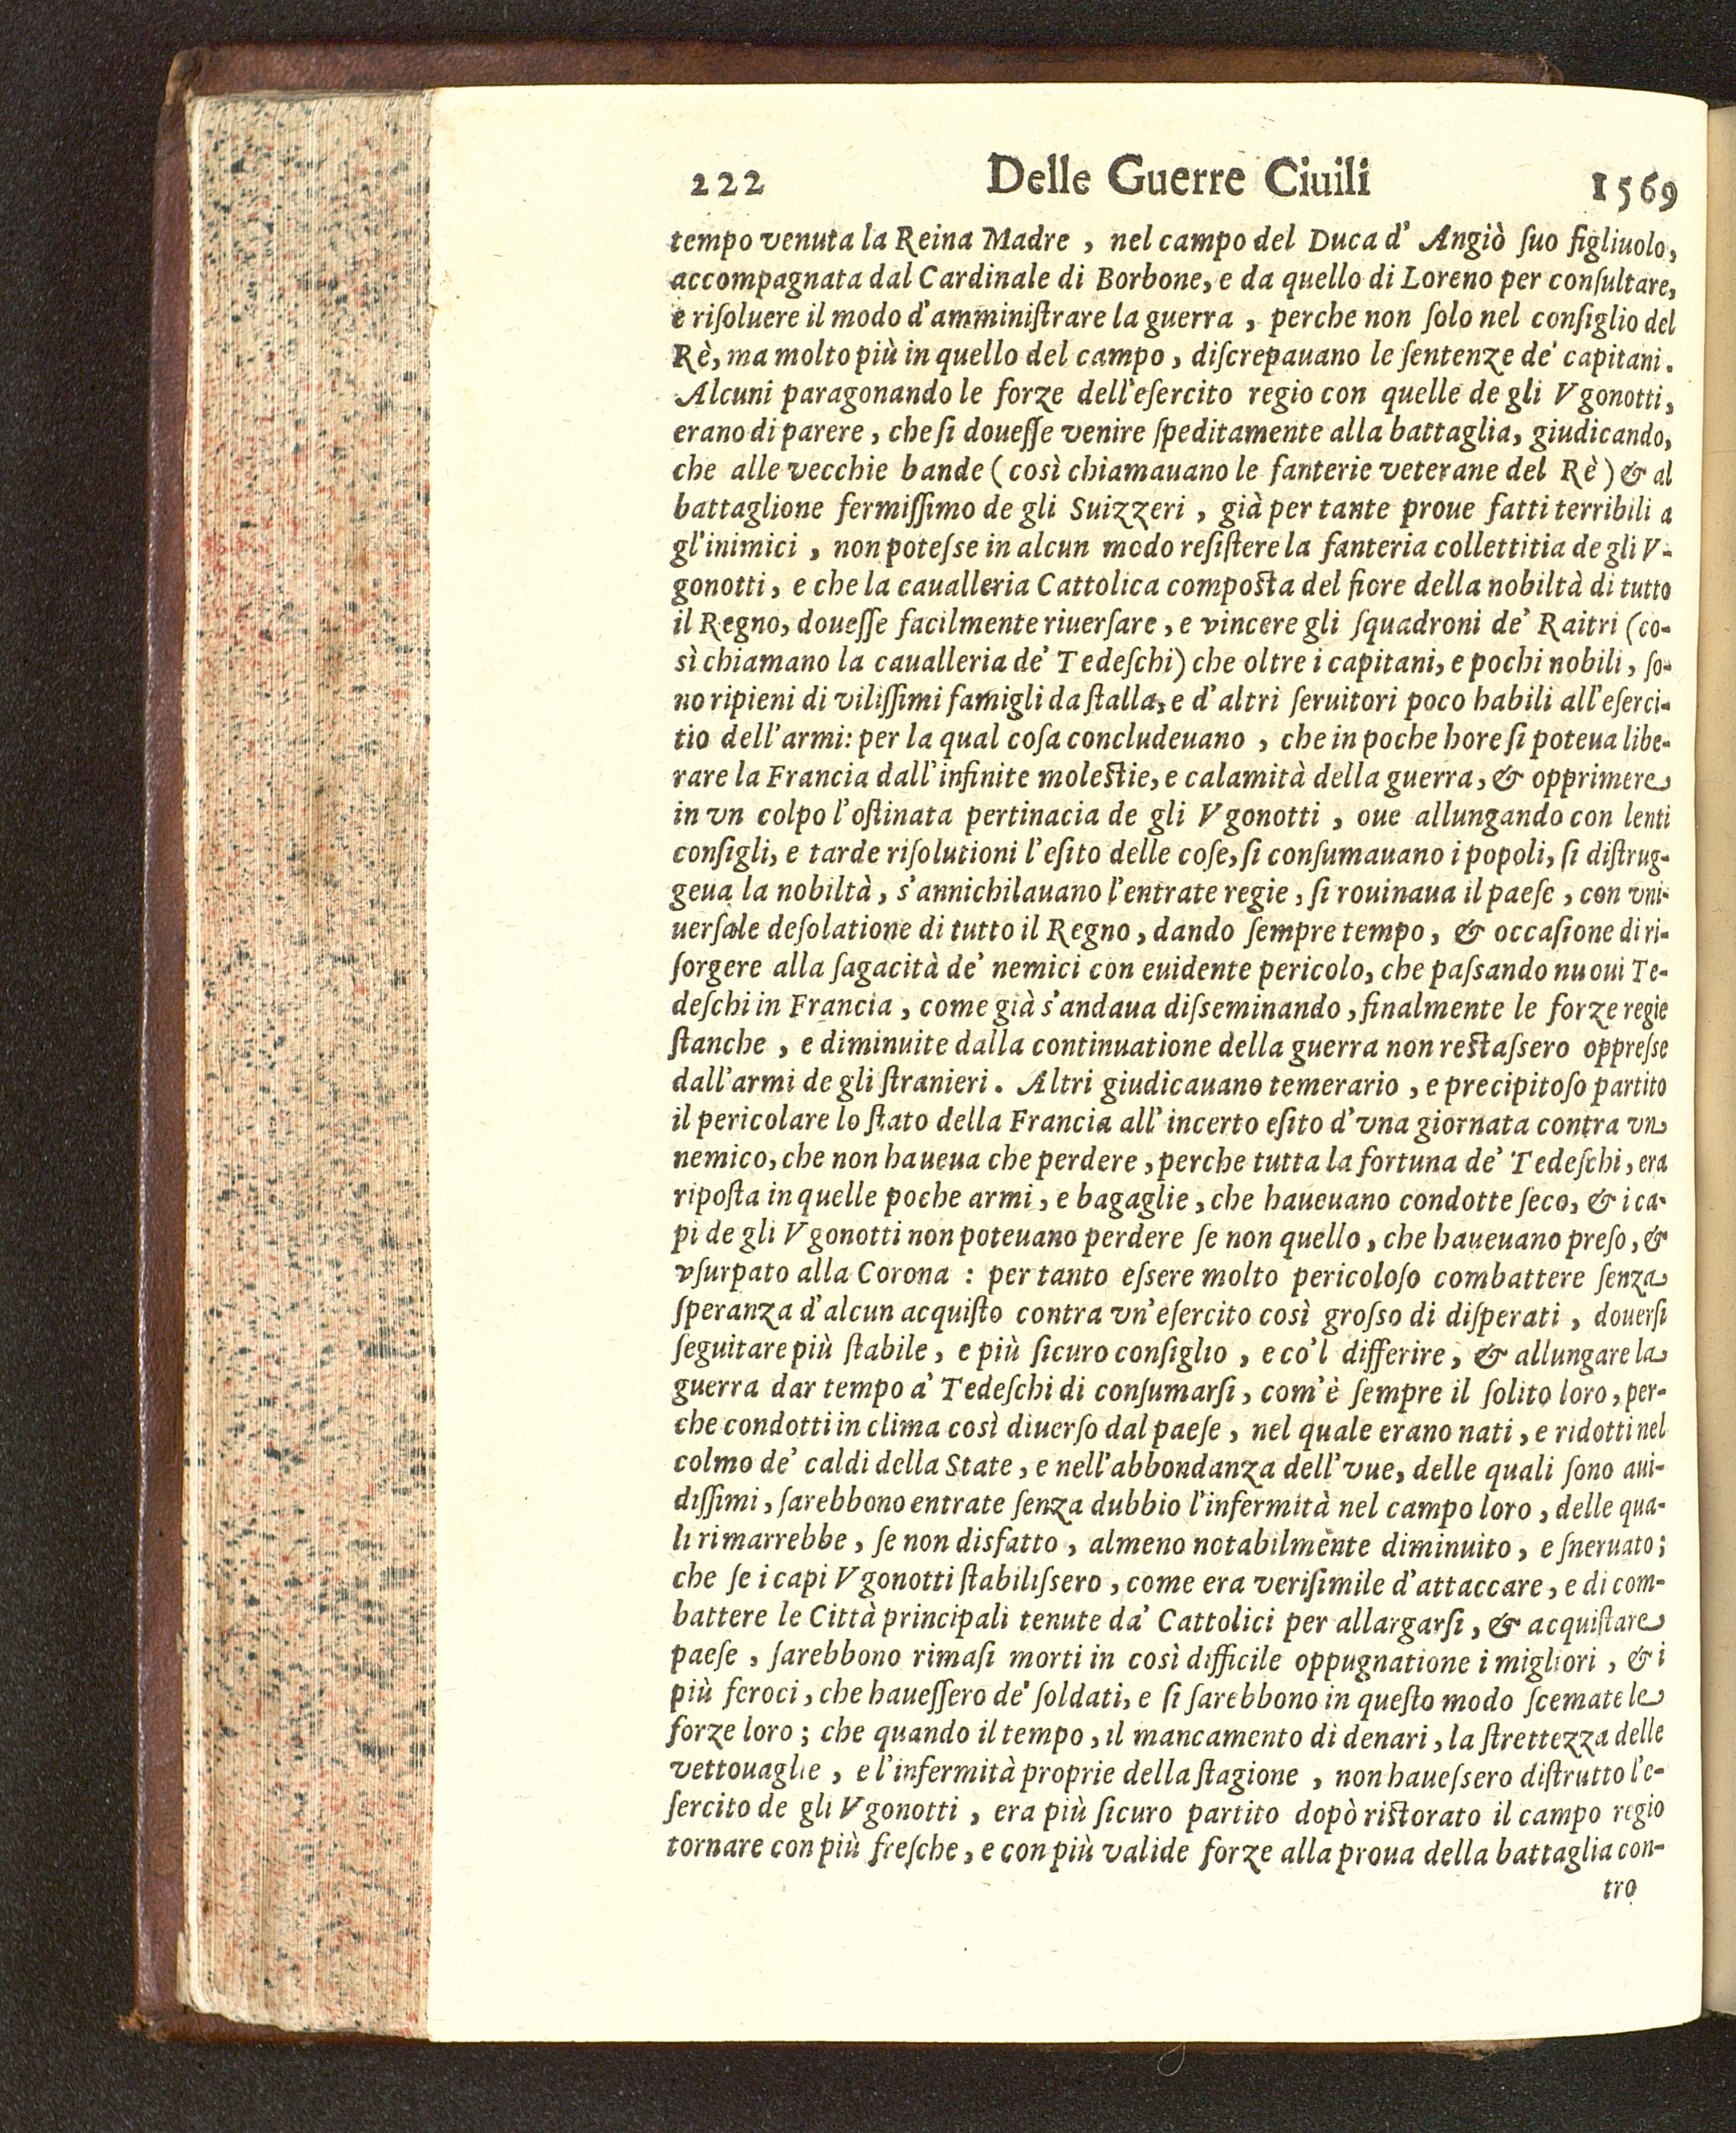 222 Delle Guerre Ciuili 1569
tempo venuta la Reina Madre , nel campo del Duca d' Angiò ſuo figliuolo,
accompagnata dal Cardinale di Borbone, e da quello di Loreno per conſultare,
e riſoluere il modo d'amminiſtrare la guerra , perche non ſolo nel conſiglio del
Rè, ma molto più in quello del campo , diſcrepauano le ſentenze de' capitani.
Alcuni paragonando le forze dell'eſercito regio con quelle de gli Vgonotti,
erano di parere , che ſi doueſſe venire ſpeditamente alla battaglia, giudicando,
che alle vecchie bande ( così chiamauano le fanterie veterane del Rè ) & al
battaglione fermiſſimo de gli Suizzeri , già per tante proue fatti terribili a
gl'inimici , non poteſse in alcun modo reſiſtere la fanteria collettitia de gli V-
gonotti, e che la caualleria Cattolica compoſta del fiore della nobiltà di tutto
il Regno, doueſſe facilmente riuerſare , e vincere gli ſquadroni de' Raitri (co-
sì chiamano la caualleria de' Tedeſchi) che oltre i capitani, e pochi nobili , ſo-
no ripieni di viliſſimi famigli da ſtalla, e d'altri ſeruitori poco habili all'eſerci-
tio dell'armi: per la qual coſa concludeuano , che in poche hore ſi poteua libe-
rare la Francia dall'infinite moleſtie, e calamità della guerra, & opprimere
in vn colpo l'oſtinata pertinacia de gli Vgonotti , oue allungando con lenti
conſigli, e tarde riſolutioni l'eſito delle coſe, ſi conſumauano i popoli, ſi diſtrug-
geua la nobiltà , s'annichilauano l'entrate regie , ſi rouinaua il paeſe , con vni-
uerſale deſolatione di tutto il Regno , dando ſempre tempo , & occaſione di ri-
ſorgere alla ſagacità de' nemici con euidente pericolo, che paſsando nuoui Te-
deſchi in Francia , come già s'andaua diſseminando , finalmente le forze regie
ſtanche , e diminuite dalla continuatione della guerra non reſtaſsero oppreſse
dall'armi de gli ſtranieri . Altri giudicauano temerario , e precipitoſo partito
il pericolare lo ſtato della Francia all' incerto eſito d'vna giornata contra vn
nemico, che non haueua che perdere , perche tutta la fortuna de' Tedeſchi , era
ripoſta in quelle poche armi , e bagaglie , che haueuano condotte ſeco, & i ca-
pi de gli Vgonotti non poteuano perdere ſe non quello , che haueuano preſo , &
vſurpato alla Corona : per tanto eſsere molto pericoloſo combattere ſenza
ſperanza d'alcun acquiſto contra vn'eſercito così groſso di diſperati , douerſi
ſeguitare più ſtabile , e più ſicuro conſiglio , e co'l differire , & allungare la
guerra dar tempo a' Tedeſchi di conſumarſi , com'è ſempre il ſolito loro , per-
che condotti in clima così diuerſo dal paeſe , nel quale erano nati , e ridotti nel
colmo de' caldi della State , e nell'abbondanza dell'vue, delle quali ſono aui-
diſſimi , ſarebbono entrate ſenza dubbio l'infermità nel campo loro , delle qua-
li rimarrebbe , ſe non disfatto , almeno notabilmẽnte diminuito , e ſneruato ;
che ſe i capi Vgonotti ſtabiliſsero , come era veriſimile d'attaccare , e di com-
battere le Città principali tenute da' Cattolici per allargarſi , & acquiſtare
paeſe , ſarebbono rimaſi morti in così difficile oppugnatione i migliori , & i
più feroci , che haueſſero de' ſoldati, e ſi ſarebbono in queſto modo ſcemate le
forze loro ; che quando il tempo , il mancamento di denari , la ſtrettezza delle
vettouaglie , e l'infermità proprie della ſtagione , non haueſsero diſtrutto l'e-
ſercito de gli Vgonotti , era più ſicuro partito dopò riſtorato il campo regio
tornare con più freſche , e con più valide forze alla proua della battaglia con-
tro